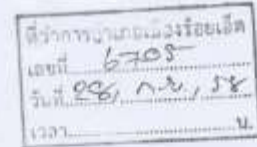 ที่ว่าการอำเภอเมืองร้อยเอ็ด
เลขที่ 6705
วันที่ 28, ก.ย., 58
เวลา..........................น.